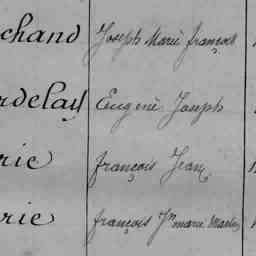 chand Joseph Marie françois
rdelay Eugène Joseph
rie françois Jean
rie françois Jn marie Martin